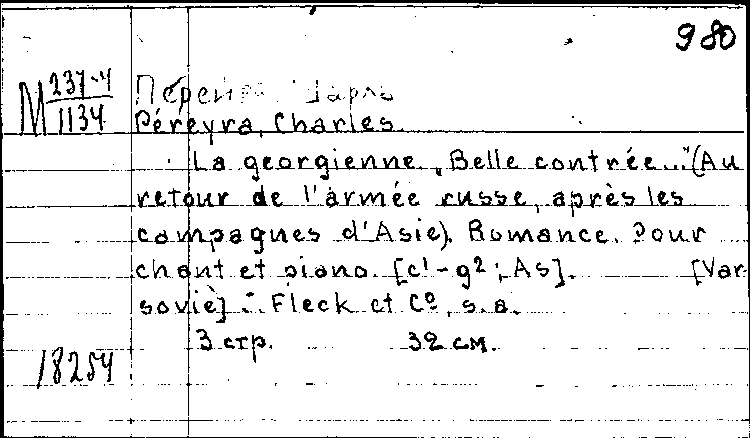 980
М 237-4/1134
Перейра Чарль
Péreyra, Charles.
La georgienne „Belle contrée..."(Au
retour de l'armée russe, après les
campagnes d'Asie). Romance. Pour
chant et piano. [c¹-g²; As]. [Var-
sovie]. Fleck et Cº, s.a.
3 стр. 32 см.
18254